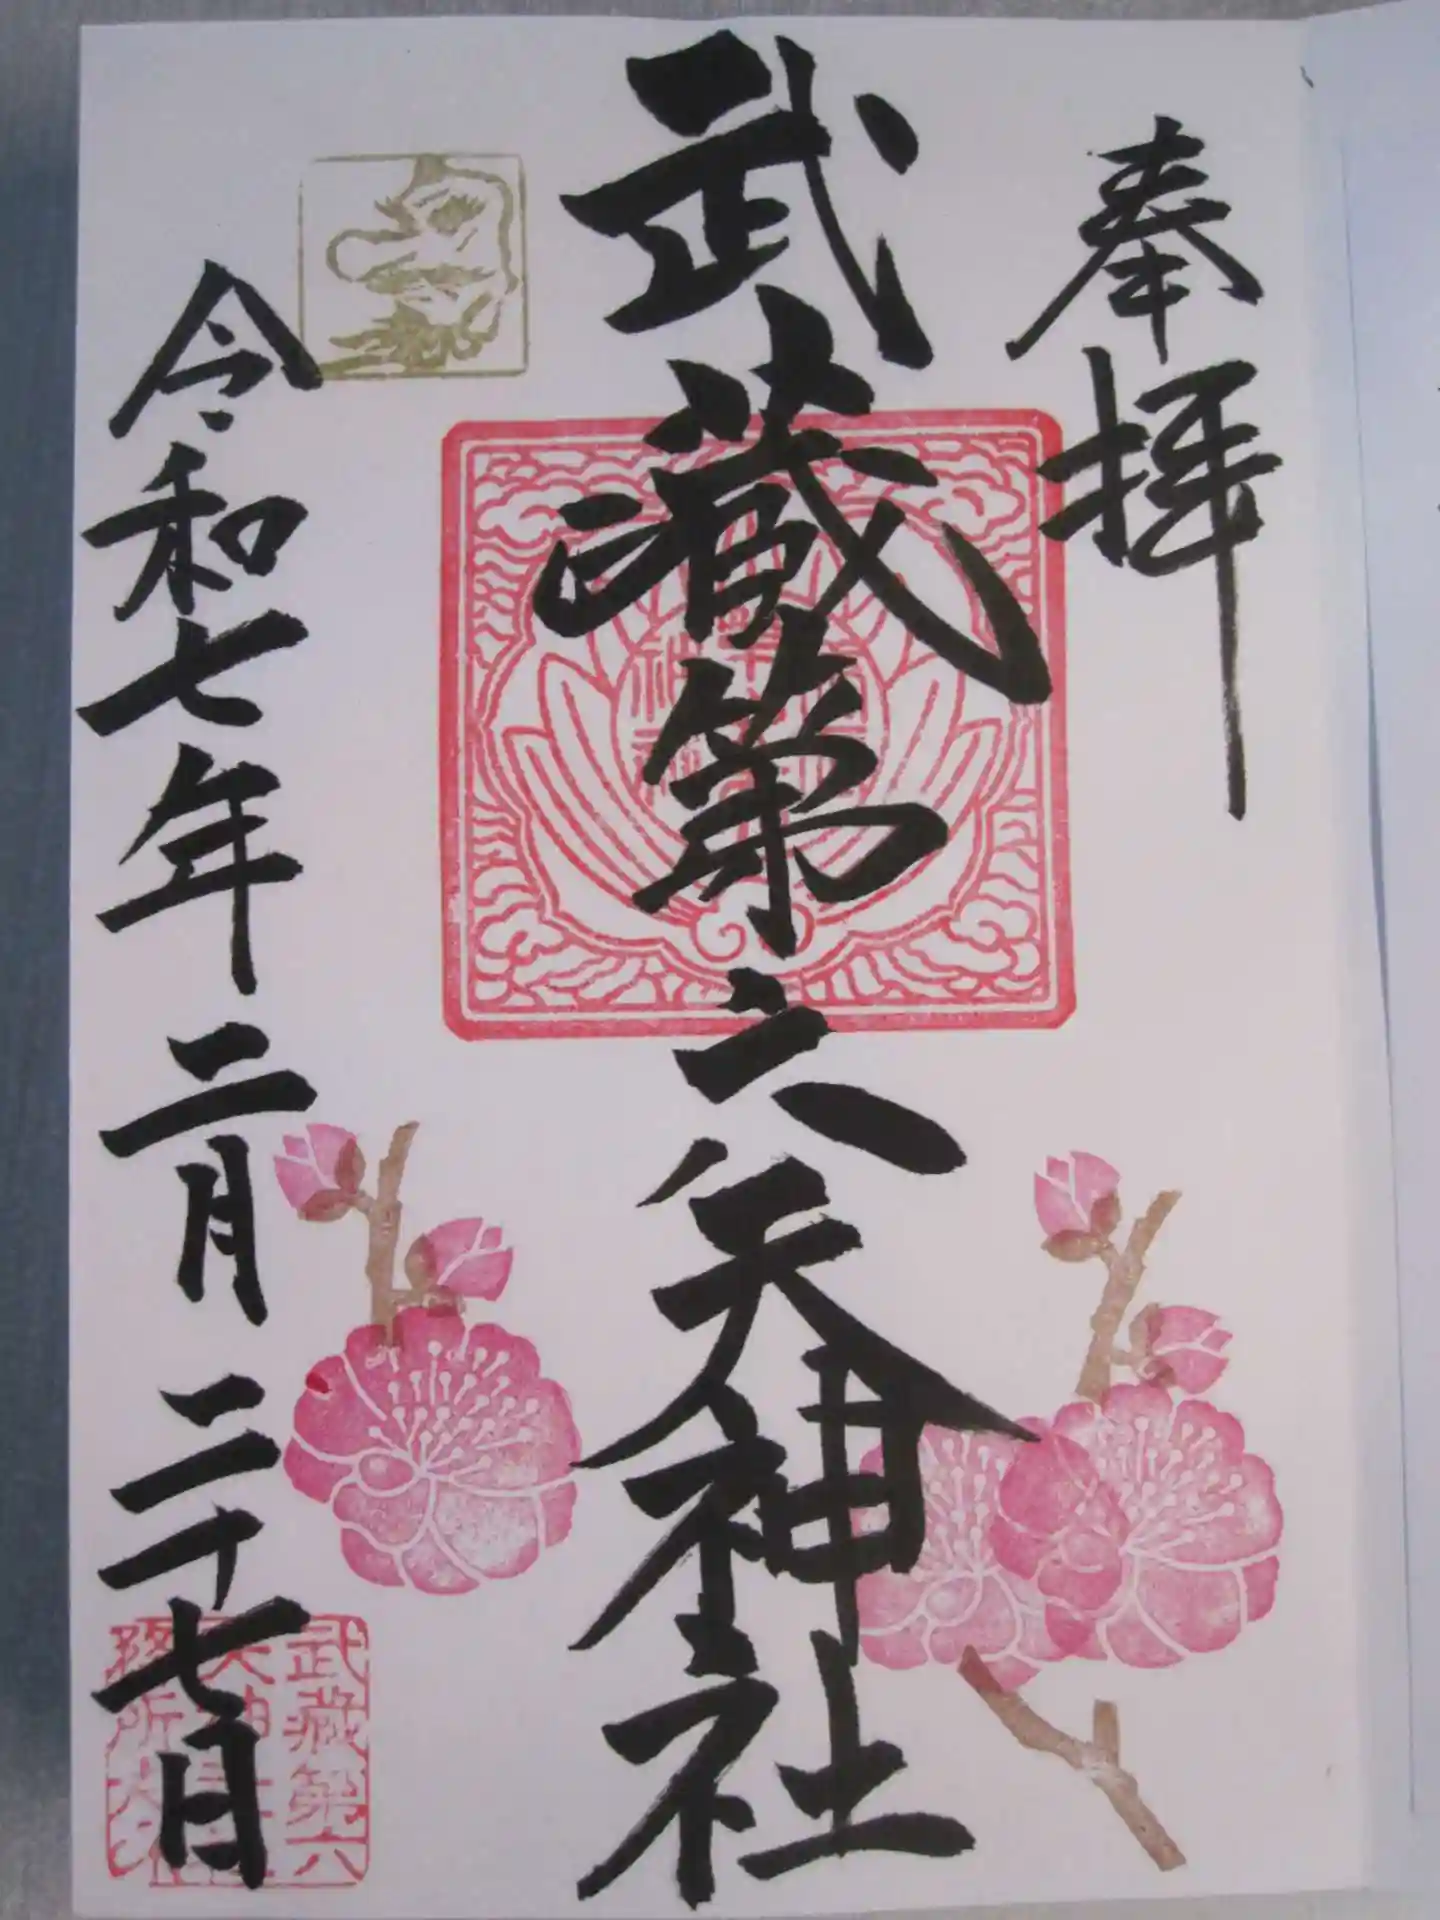 奉拝
武蔵第六天神社
令和七年二月二十七日
武蔵第六
天神社
務所之印